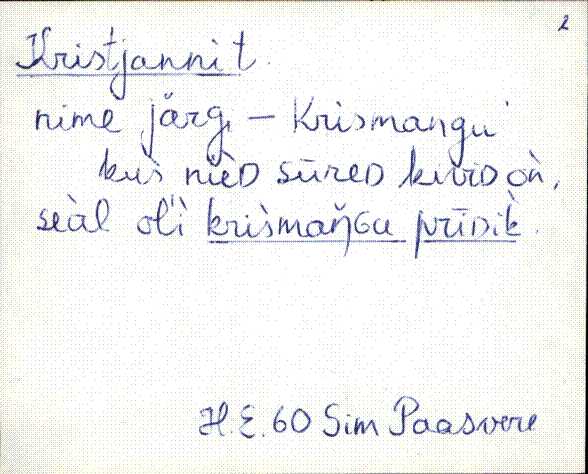 2
Kristjannit.
nime järg, – Krismangu
kus nièD sūreD kiviD òn,
seàl ol'i krìsmaŋGu prīDik.
H.E. 60 Sim Paasvere